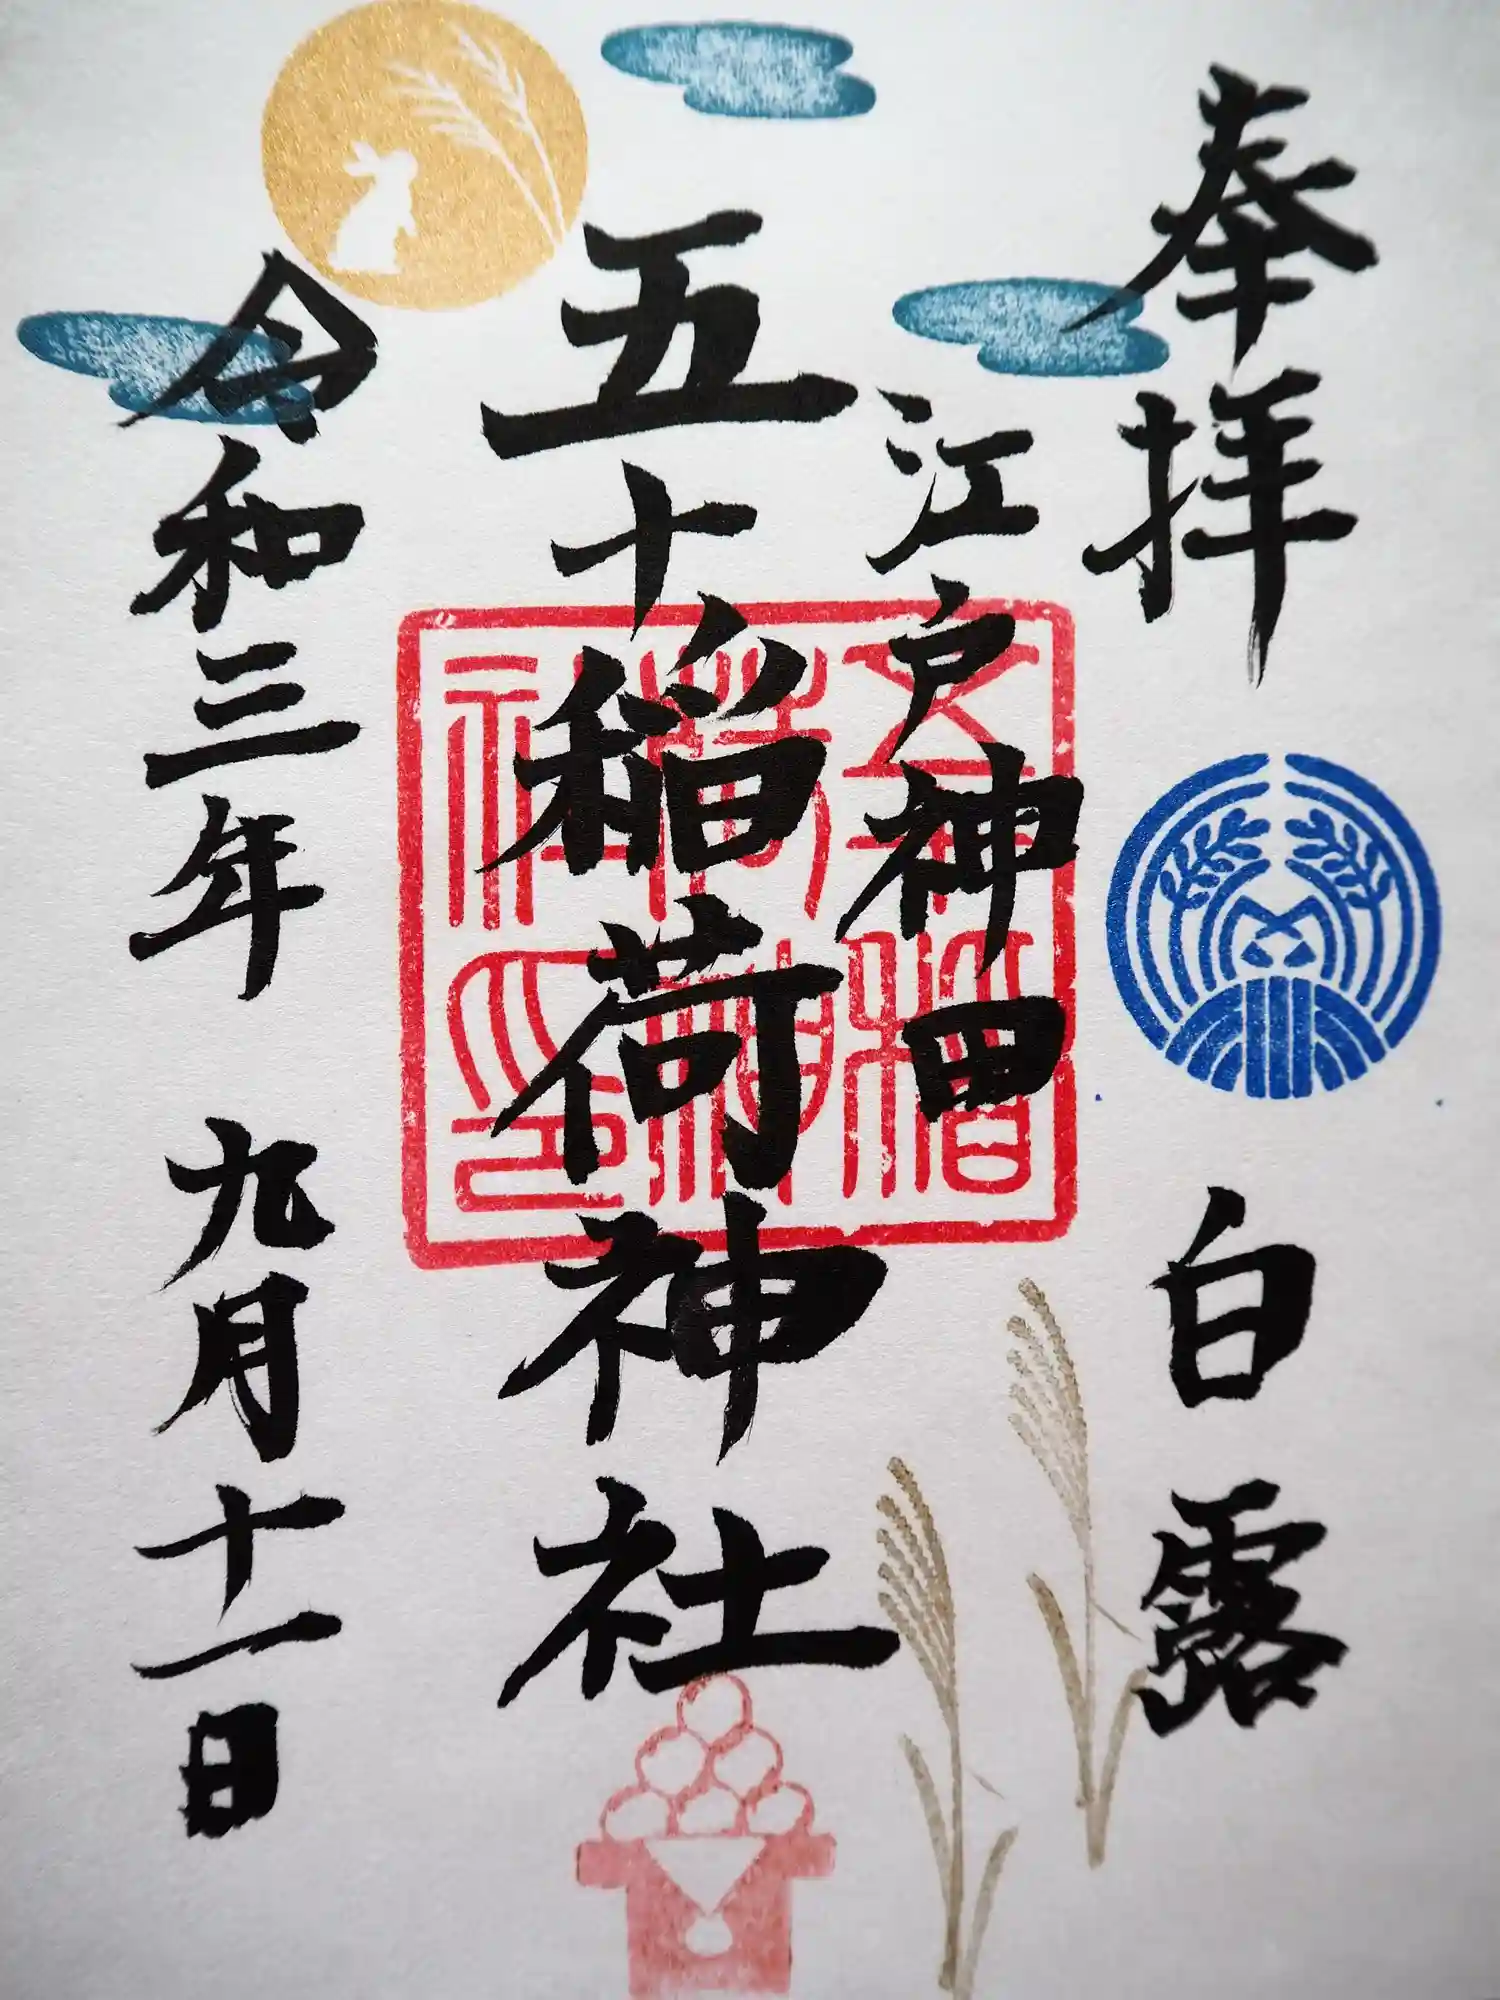 奉拝
白露
江戸神田
五十稲荷神社
五十稲荷神社印
令和三年
九月十一日